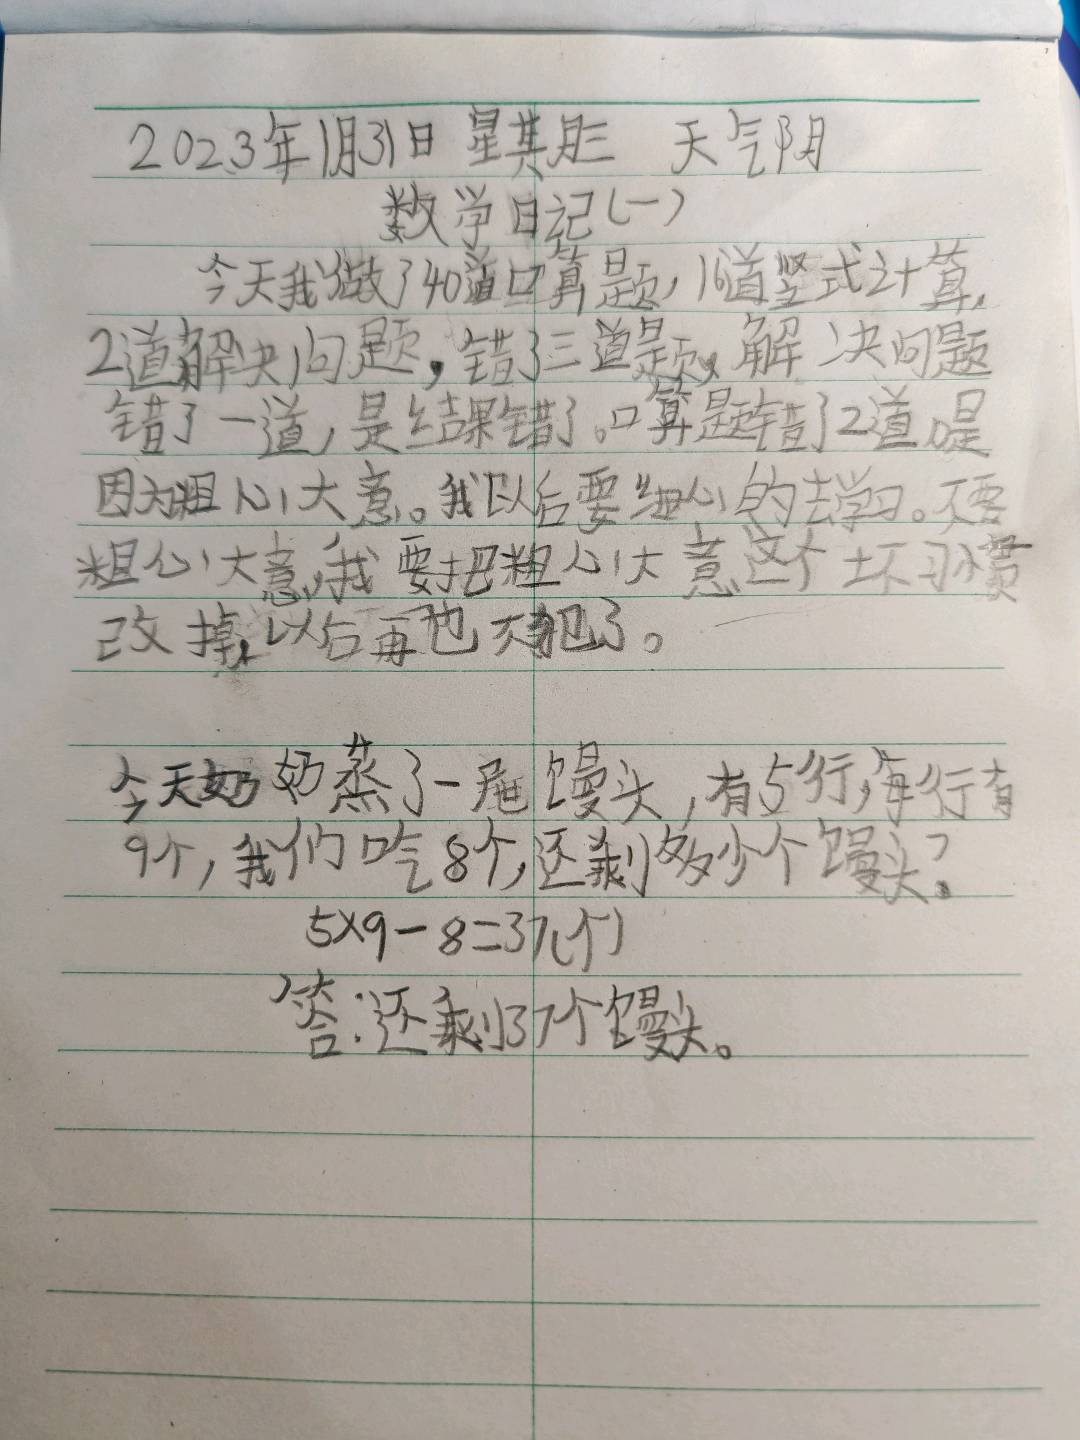 2023年1月31日 星其月三 天气阴
数学日记(一)
今天我做了40道口算题,16道竖式计算,
2道解决问题,错了三道题,解决问题
错了一道,是结果错了。口算题错了2道,是
因为粗心大意。我以后要细心的去学习。不要
粗心大意,我要把粗心大意这个坏习惯
改掉,以后再也不犯了。
今天奶奶蒸了一屉馒头,有5行,每行有
9个,我们吃8个,还剩多少个馒头?
5×9-8=37(个)
答:还剩37个馒头。